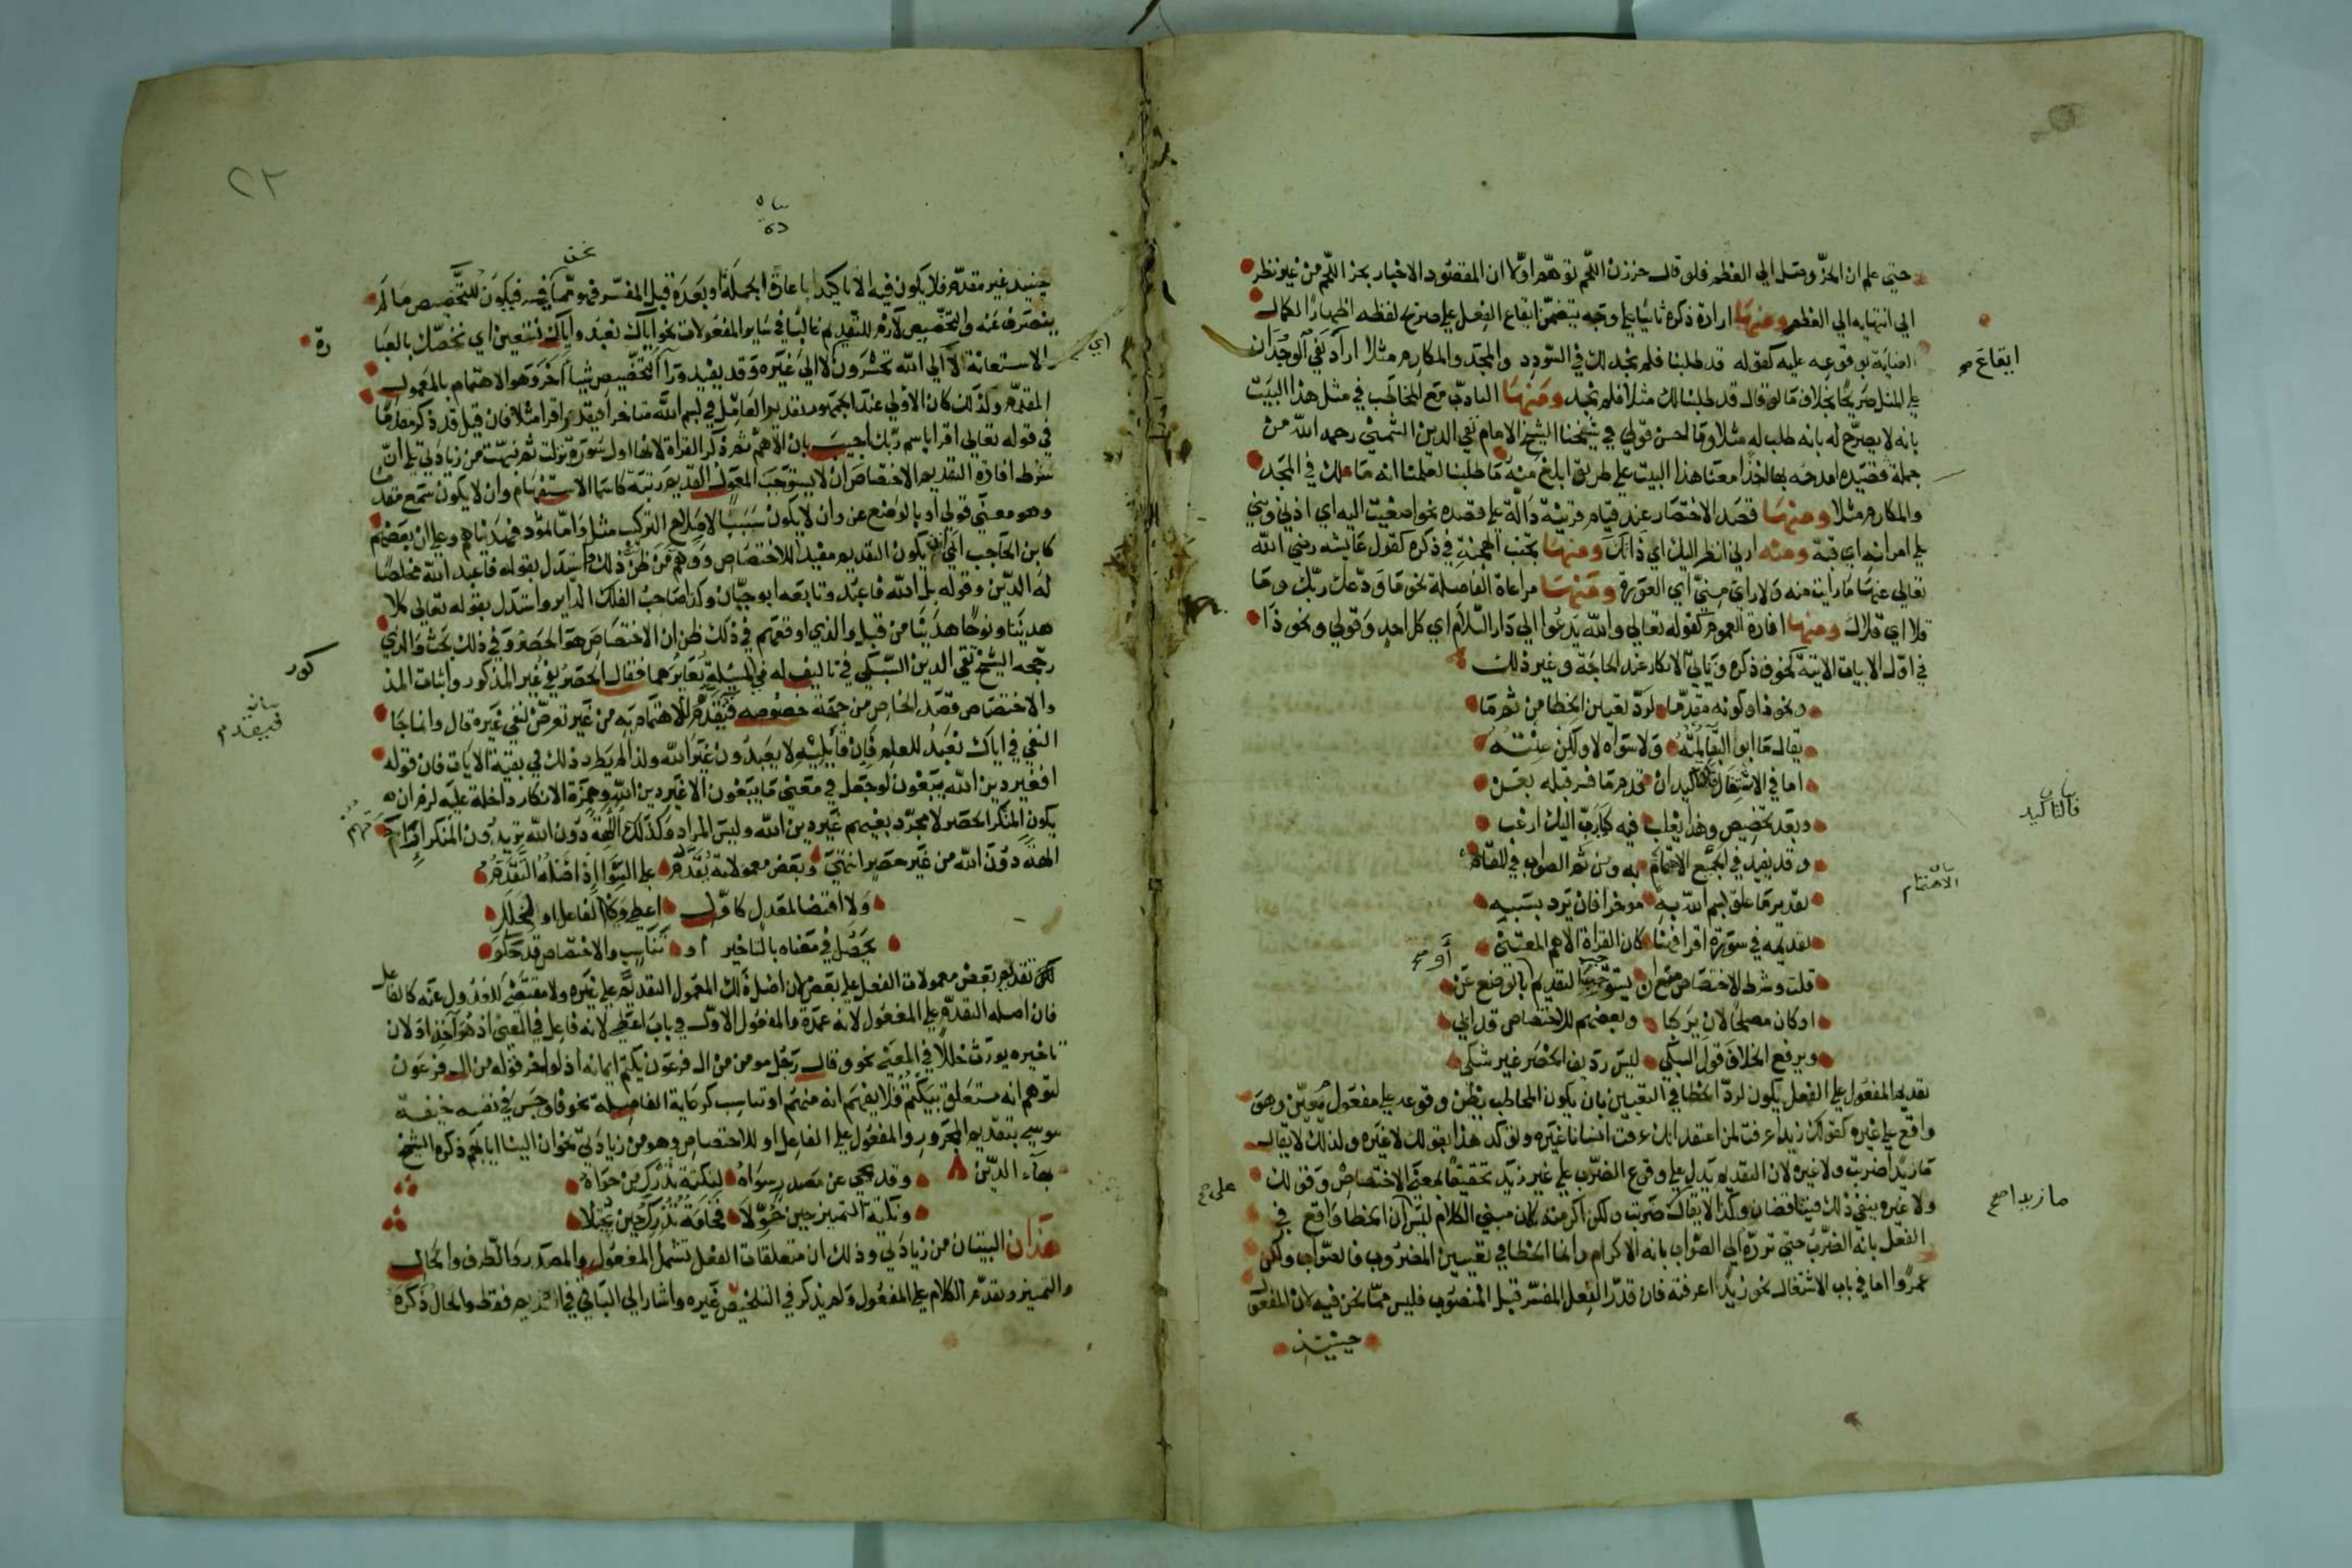 حتى علم ان الحزّ وصل الي العظم فلو قال حززن اللحم توهم اولا ان المقصود الاخبار بحز اللحم من غير نظر
الي انتهايه الي العظم ومنها ارادة ذكره ثانيا علي وجه يتضمن ايقاع الفعل علي صريح لفظه اظهارا لكمال
العناية بوقوعه عليه كقوله قد طلبنا فلم نجد لك في السودد والمجد والمكارم مثلا اراد نفي الوجدان
ايقاع صح
علي المثل صريحا بخلاف ما لو قال قد طلبنا لك مثلا فلم نجد ومنها التادب مع المخاطب في مثل هذا البيت
بانه لا يصرح له بانه طلب له مثلا وما احسن قولي في شيخنا الشيخ الامام تقي الدين الشمني رحمه الله من
جملة قصيدة امدحه بها اخذا معنا هذا البيت علي طريق ابلغ منه ما طلبنا لعلمنا انه ما لك في المجد
والمكارم مثلا ومنها قصد الاختصار عند قيام قرينة دالة علي قصده نحو اصغيت اليه اي اذني وبني
علي امراته اي قبة ومنه ارني انظر اليك اي ذاتك ومنها تجنب الهجنة في ذكره كقول عايشه رضي الله
تعالي عنها ما رايت منه ولا راي مني اي العورة ومنها مراعاة الفاصلة نحو ما ودعك ربك وما
قلا اي قلاك ومنها افادة العموم كقوله تعالي والله يدعوا الي دار السلام اي كل احد وقولي ونحو ذا
في اول الابيات الاتية كخوف ذكره وتاتي الانكار عند الحاجة وغير ذلك
ونحو ذا وكونه مقدما لرد تعيين الخطا من ثم ما
يقال ما ابو البقا لمته ولا سواه لا ولكن عنته
اما في الاشتغال فالتاكيد ان قدم ما فسر قبله بعن
فالتاكيد
وبعد تخصيص وهذا يغلب فيه كيا رب اليك ارغب
وقد يفيد في الجميع الاهتمام به ومن ثم الصواب في المقام
الاهتمام
تقدير ما علق بسم الله به موخرا فان يرد بسببه
تقديمه في سورة اقرا فهنا كان القراة الاهم المعتني
قلت وشرط الاختصاص منع ان يستوجب التقديم او بالوضع عن
أو صح
او كان مصلحا لان يركبا وبعضهم للاختصاص قد ابي
ويرفع الخلاف قول السبكي ليس رديف الحصر غير شكي
تقديم المفعول علي الفعل يكون لرد الخطا في التعيين بان يكون المخاطب يظن وقوعه علي مفعول معين وهو
واقع علي غيره كقولك زيدا عرفت لمن اعتقد انك عرفت انسانا غيره ولتوكد هذا بقولك لا غيره ولذلك لا يقال
ما زيدا ضربت ولا غيره لان التقديم يدل علي وقوع الضرب علي غير زيد تحقيقا لمعنى الاختصاص وقولك
ما زيدا صح
على صح
ولا غيره ينفي ذلك فيتناقضان وكذا لا يقال ضربت ولكن اكرمته لان مبني الكلام ليس ان الخطا واقع في
الفعل بانه الضرب حتى ترده الي الصواب بانه الاكرام وانما الخطا في تعيين المضروب فالصواب ولكن
عمروا اما في باب الاشتغال نحو زيدا عرفته فان قدر الفعل المفسر قبل المنصوب فليس مما نحن فيه لان المفعو
حينيذ
٢٢
حينيذ غير مقدم فلا يكون فيه الا تاكيدا باعادة الجملة او بعده قبل المفسر فهو مما فيه فيكون للتخصيص ما لم
نحن
ينصرف عنه والتخصيص لازم للتقديم غالبا في ساير المفعولات نحو اياك نعبد واياك نستعين اي نخصك بالعبا
دة
والاستعانة لا الي الله تحشرون لا الي غيره وقد يفيد ورآ التخصيص شيا اخر وهو الاهتمام بالمعمول
اي
المقدم وكذلك كان الاولي عند الجمهور تقدير العامل في بسم الله متاخرا فيقدر اقرا مثلا فان قيل قد ذكر مقدما
في قوله تعالي اقرا باسم ربك اجيب بان الاهم ثم ذكر القراة لانها اول سورة نزلت ثم نبهت من زيادتي علي ان
شرط افادة التقديم الاختصاص ان لا يستوجب المعمول التقديم رتبة كاسما الاستفهام وان لا يكون سمع مقدما
وهو معني قولي او بالوضع عن وان لا يكون سببا لاصلاح التركيب مثل واما ثمود فهديناهم وعلي ان بعضهم
كابن الحاجب ابي ان يكون التقديم مفيدا للاختصاص ووهم من ظن ذلك واستدل بقوله فاعبد الله مخلصا
له الدين وقوله بل الله فاعبد وتابعه ابو حيان وكذا صاحب الفلك الداير واستدل بقوله تعالي كلا
هدينا ونوحا هدينا من قبل والذي اوقعهم في ذلك ظن ان الاختصاص هو الحصر وفي ذلك بحث والذي
رجحه الشيخ تقي الدين السبكي في تاليف له في المسئلة تغايرهما فقال الحصر نفي غير المذكور واثبات المذ
كور
والاختصاص قصد الخاص من جهة خصوصه فيقدم للاهتمام به من غير تعرض لنفي غيره قال وانما جا
فيقدم
النفي في اياك نعبد للعلم فان قايليه لا يعبدون غير الله ولذا لم يطرد ذلك في بقية الايات فان قوله
افغير دين الله يبغون لو جعل في معني ما يبغون الا غير دين الله وهمزة الانكار داخلة عليه لزم ان
يكون المنكر الحصر لا مجرد بغيهم غير دين الله وليس المراد وكذلك الهة دون الله تريدون المنكر ارادتهم
الهة دون الله من غير حصر انتهي وبعض معمولاته يقدم علي السوا اذ اصله التقدم
ولا اقتضا لمعدل كاول اعطي وكالفاعل او لخلل
يحصل في معناه بالتاخير او تناسب والاختصاص قد حكوا
لكن تقديم بعض معمولات الفعل علي بعض لان اصل ذلك المعمول التقديم علي غيره ولا مقتضي للعدول عنه كالفاعل
فان اصله التقدم علي المفعول لانه عمدة والمفعول الاول في باب اعطي لانه فاعل في المعنى اذ هو آخذ او لان
تاخيره يورث خللا في المعني نحو وقال رجل مومن من ال فرعون يكتم ايمانه اذ لو اخر قوله من ال فرعون
لتوهم انه متعلق بيكتم فلا يفهم انه منهم او تناسب كرعاية الفاصلة نحو فاوجس في نفسه خيفة
موسي بتقديم المجرور والمفعول علي الفاعل او للاختصاص وهو من زيادتي نحو ان الينا ايابهم ذكره الشيخ
بهاء الدين وقد يجي عن مصدر سواه لنكتة تدرك من حواه
ونكتة التمييز حين حولا فخامة تدرك حين تجتلا
هذان البيتان من زيادتي وذلك ان متعلقات الفعل تشمل المفعول والمصدر والظرف والحال
والتمييز وتقدم الكلام علي المفعول ولم يذكر في التلخيص غيره واشار الي الباقي في التقديم فقط والحال ذكره